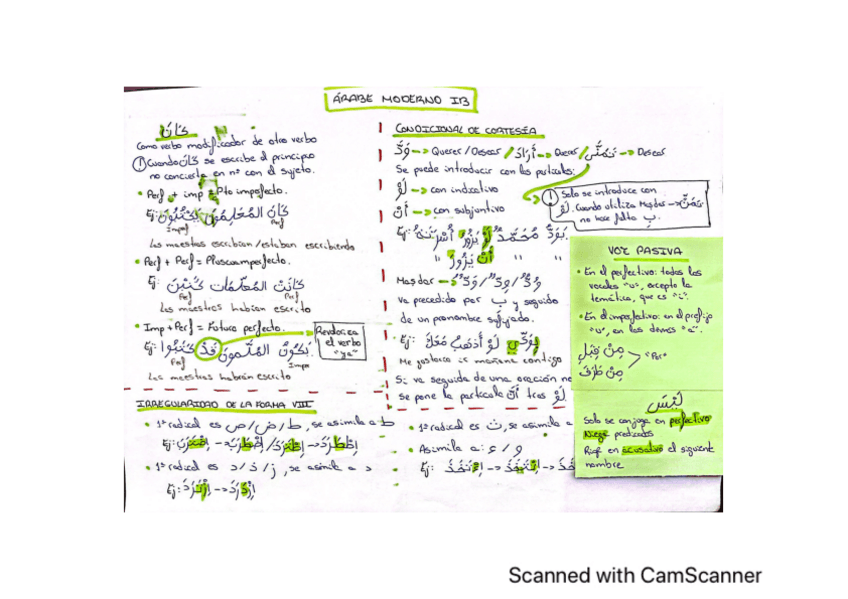 ÁRABE MODERNO IB
كَانَ
Como verbo modificador de otro verbo
① Cuando كَانَ se escribe al principio
no concierta en nº con el sujeto.
• Perf + imp = Pto imperfecto.
Ej: كَانَ المُعَلِّمُونَ يَكْتُبُونَ
Imperf Perf
Los maestros escribían/estaban escribiendo
• Perf + Perf = Pluscuamperfecto.
Ej: كَانَتْ المُعَلِّمَات كَتَبْنَ
Perf Perf
Los maestros habían escrito
• Imp + Perf = Futuro perfecto.
Ej: يَكُونُ المُعَلِّمونَ قَدْ كَتَبُوا
Perf Imperf
Los maestros habrán escrito
Revaloriza
el verbo
"ya"
IRREGULARIDAD DE LA FORMA VIII
• 1ª radical es ط/ض/ص, se asimila a ط
• 1ª radical es د/ذ/ز, se asimila a د
Ej:
• 1ª radical es ث, se asimila a
• Asimila a: و / ء
Ej:
CONDICIONAL DE CORTESÍA
وَدَّ --> Querer/Desear / أَرَادَ --> Querer / تَمَنَّى --> Desear
Se puede introducir con las partículas:
لَوْ --> con indicativo
أَنْ --> con subjuntivo
① Solo se introduce con
لَوْ. Cuando utiliza Maṣdar -->
no hace falta بِ.
Ej: يَوَدُّ مُحَمَّدٌ لَوْ يَزُورُ أُسْرَتَهُ.
" " أَنْ يَزُورَ " "
Maṣdar --> وُدّ/وِدّ/وَدّ
va precedido por بِ y seguido
de un pronombre sufijado.
Ej: بِوُدِّي لَوْ أَذْهَبُ مَعَكَ
Me gustaría ir mañana contigo
Si va seguida de una oración no
se pone la partícula أَنْ tras لَوْ
VOZ PASIVA
• En el perfectivo: todas las
vocales "u", excepto la
temática, que es "i".
• En el imperfectivo: en el prefijo
"u", en los demás "a".
مِنْ قِبَلِ
"Por"
مِنْ طَرَفِ
لَيْسَ
Solo se conjuga en perfectivo
Niega predicados
Rige en acusativo el siguiente
nombre
Scanned with CamScanner